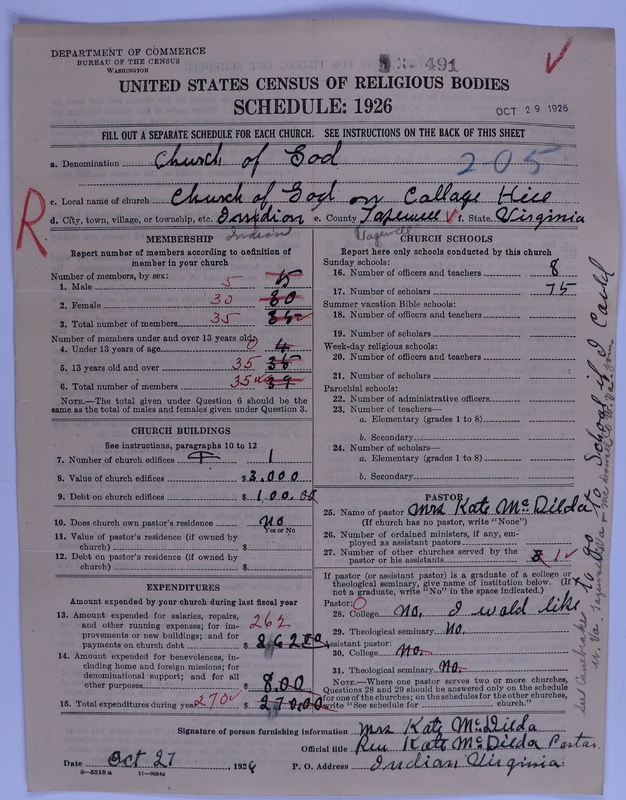 DEPARTMENT OF COMMERCE
BUREAU OF THE CENSUS
WASHINGTON
X- 491
UNITED STATES CENSUS OF RELIGIOUS BODIES
SCHEDULE: 1926
OCT 29 1926
FILL OUT A SEPARATE SCHEDULE FOR EACH CHURCH. SEE INSTRUCTIONS ON THE BACK OF THIS SHEET
a. Denomination Church of God
205
c. Local name of church Church of God on Collage Hill
R
d. City, town, village, or township, etc. Indian e. County Tazewell f. State. Virginia
Indian Tazewell
MEMBERSHIP
Report number of members according to definition of
member in your church
Number of members, by sex:
1. Male 5 5
2. Female 30 30
3. Total number of members 35 35
Number of members under and over 13 years old:
4. Under 13 years of age 0 4
5. 13 years old and over 35 35
6. Total number of members 35 39
NOTE.—The total given under Question 6 should be
same as the total of males and females given under Question 3.
CHURCH BUILDINGS
See instructions, paragraphs 10 to 12
7. Number of church edifices 1
8. Value of church edifices $3,000
9. Debt on church edifices $100.00
10. Does church own pastor's residence No
Yes or No
11. Value of pastor's residence (if owned by
church) $
12. Debt on pastor's residence (if owned by
church) $
EXPENDITURES
Amount expended by your church during last fiscal year
13. Amount expended for salaries, repairs,
and other running expenses; for im-
provements or new buildings; and for
payments on church debt 262 $ 262.00
14. Amount expended for benevolences, in-
cluding home and foreign missions; for
denominational support; and for all
other purposes $ 8.00
15. Total expenditures during year 270 $ 270.00
CHURCH SCHOOLS
Report here only schools conducted by this church
Sunday schools:
16. Number of officers and teachers 8
17. Number of scholars 75
Summer vacation Bible schools:
18. Number of officers and teachers
19. Number of scholars
Week-day religious schools:
20. Number of officers and teachers
21. Number of scholars
Parochial schools:
22. Number of administrative officers
23. Number of teachers—
a. Elementary (grades 1 to 8)
b. Secondary
24. Number of scholars—
a. Elementary (grades 1 to 8)
b. Secondary
PASTOR
25. Name of pastor Mrs Kate McDilda
(If church has no pastor, write "None")
26. Number of ordained ministers, if any, em-
ployed as assistant pastors
27. Number of other churches served by the
pastor or his assistants 1
If pastor (or assistant pastor) is a graduate of a college or
theological seminary, give name of institution below. (If
not a graduate, write "No" in the space indicated.)
Pastor: 0
28. College No. I wold like
to go to School if I Could
29. Theological seminary No.
Assistant pastor:
30. College No.
31. Theological seminary No.
NOTE.—Where one pastor serves two or more churches,
Questions 28 and 29 should be answered only on the schedule
for one of the churches; on the schedules for the other churches,
write "See schedule for church."
Signature of person furnishing information Mrs Kate McDilda
Official title Rev Kate McDilda Pastor
Date Oct 27, 1926 P. O. Address Indian Virginia
8-5518a 11-9054